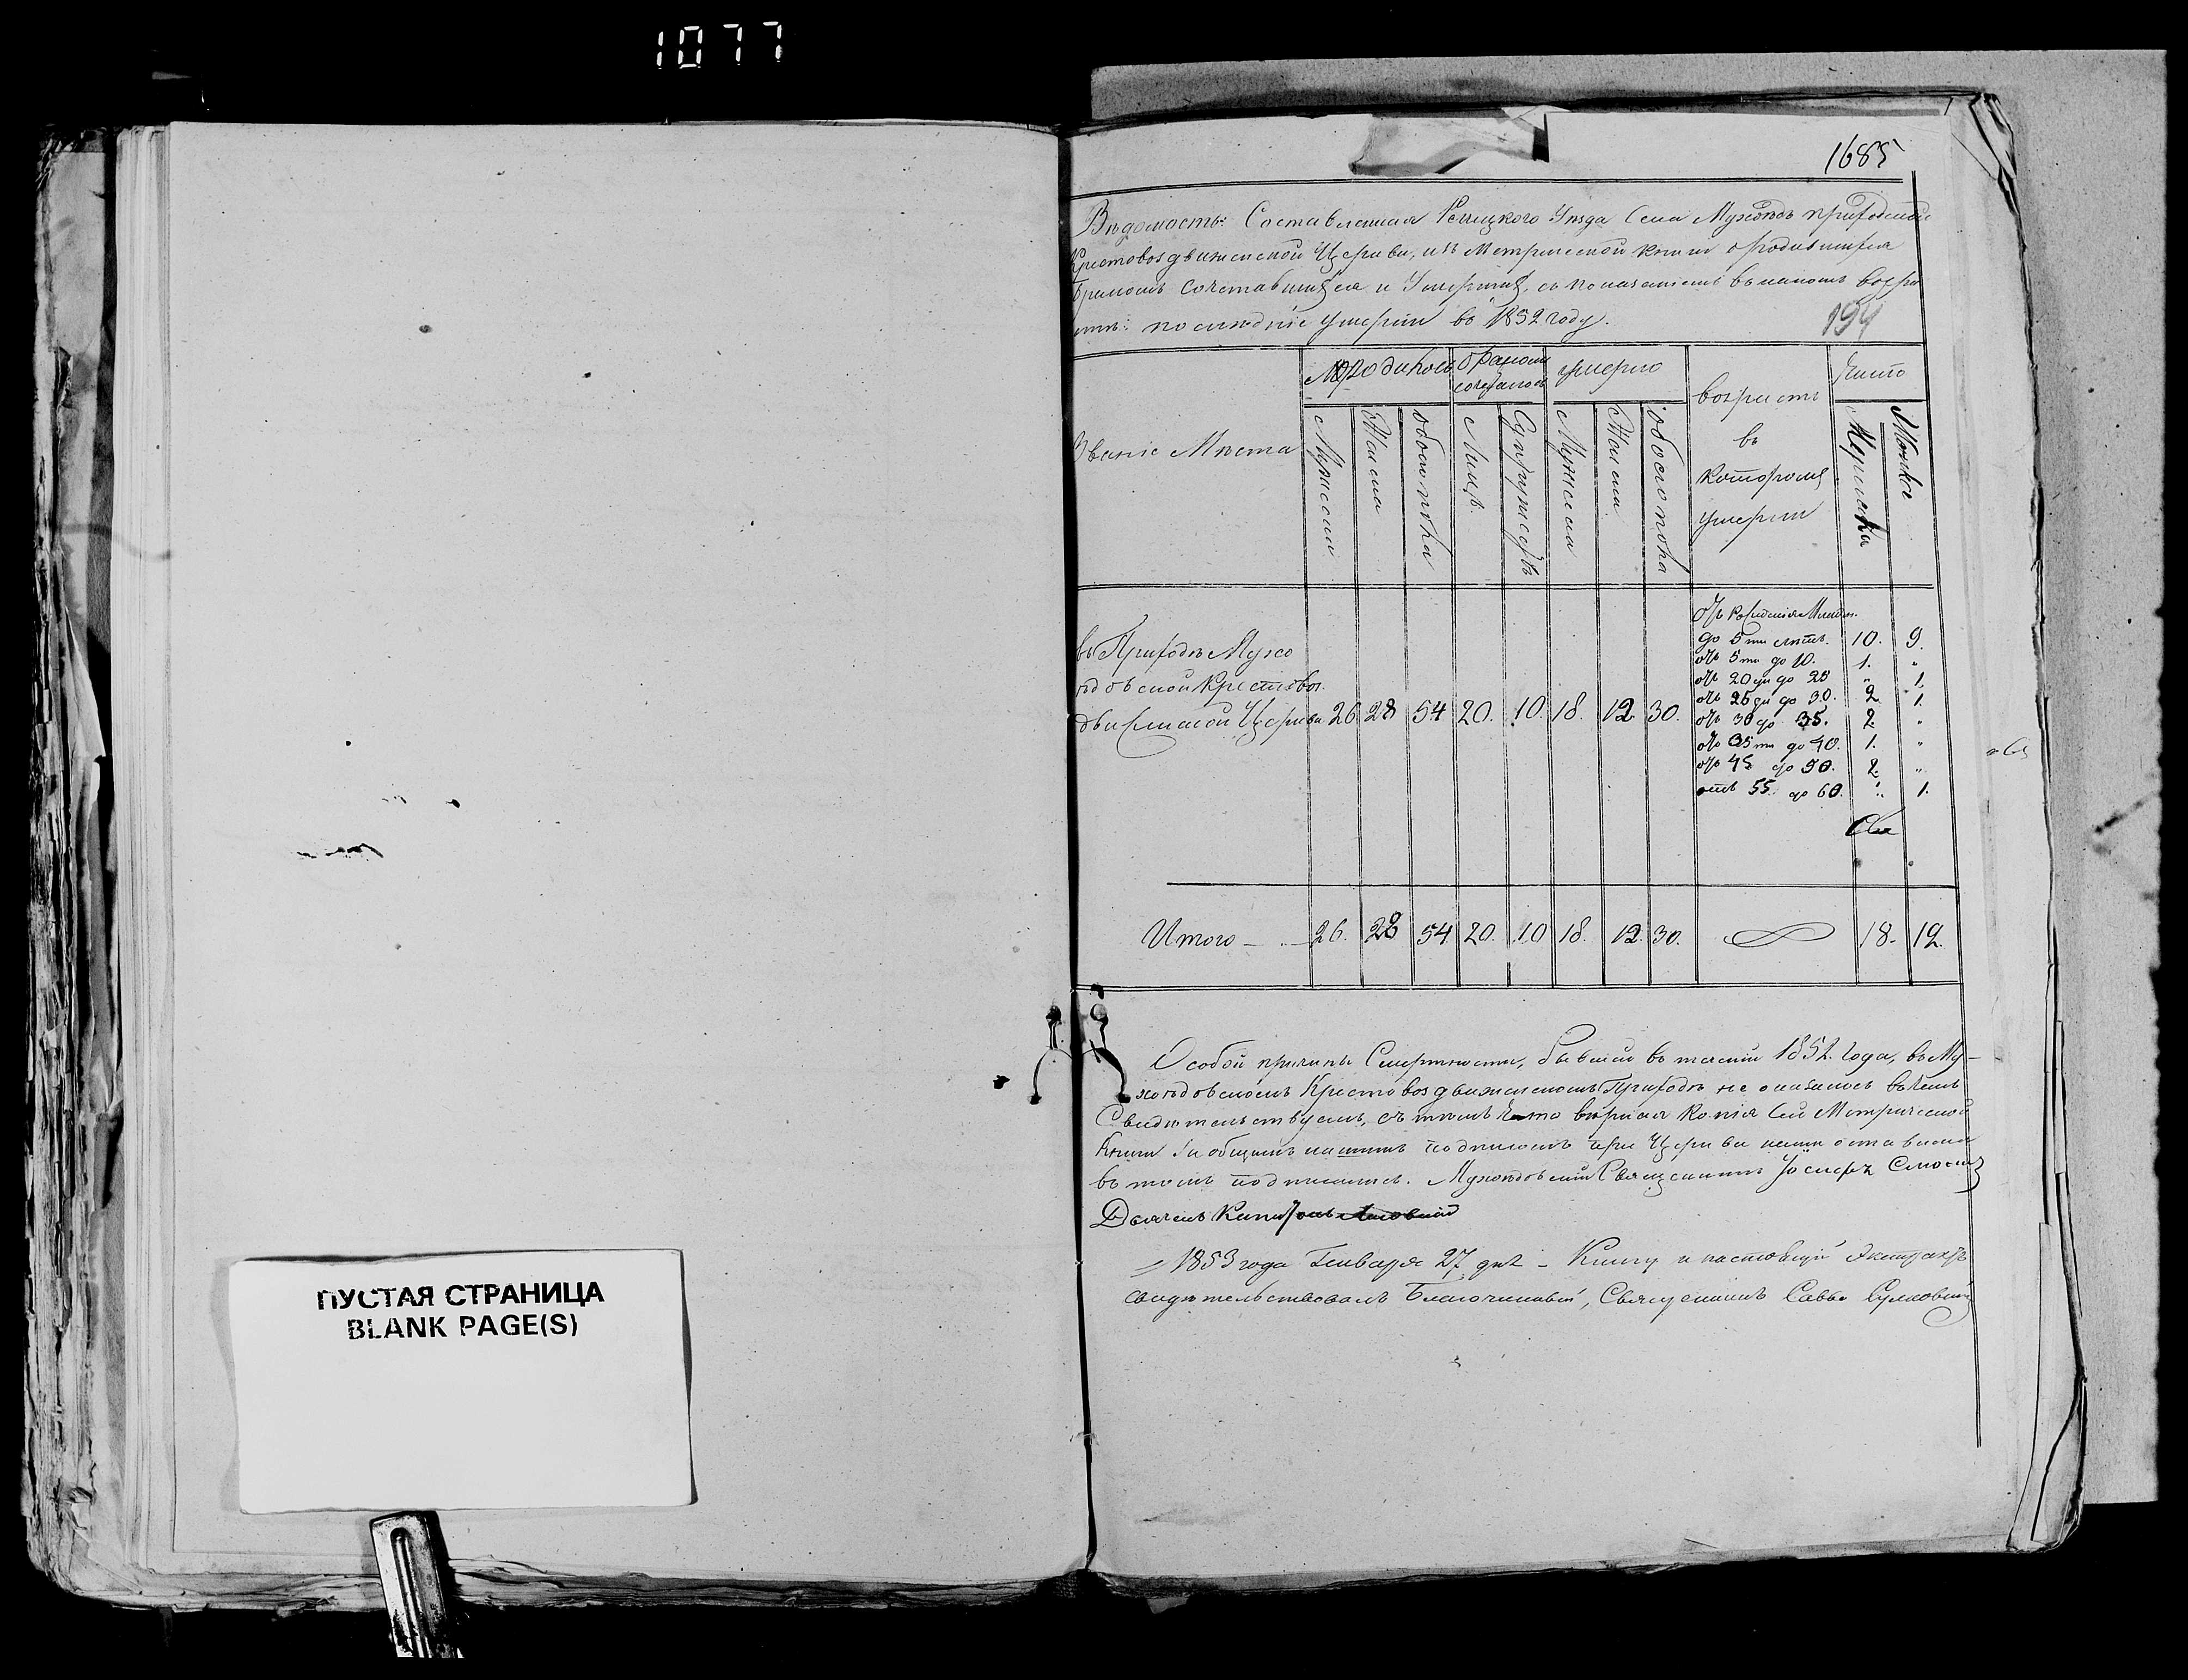 1077
1685
Ведомость: Составленная Речицкого Уезда Села Мухоедов приходской
Крестовоздвиженской Церкви, изъ Метрической книги о родившихся
бракомъ сочетавшихся и Умершихъ, съ показаніемъ въ какомъ возра
стѣ: последніе умерли въ 1852 году.
194
Званіе Мѣста
родилось
бракомъ
умерло
возрастъ
въ
которомъ
умерли
Число
Мужеска
Женска
обоего пола
Лицъ.
Супружествъ
Мужеска
Женска
обоего пола
Мужеска
Женска
въ Приходѣ Мухо
ѣдовской Крестовоз
движенской Церкви 26 28 54 20. 10. 18. 12 30.
отъ рожденія
до 5ти лѣтъ. 10. 9.
отъ 5ти до 10. 1. "
отъ 20ти до 25 " 1.
отъ 25ти до 30. 2 1.
отъ 30 до 35. 2. "
отъ 35ти до 40. 1. "
отъ 45 до 50. 2. "
отъ 55. до 60. " 1.
Итого — 26. 28 54 20. 10 18. 12. 30. 18. 12.
Особой причины Смертности, бывшей въ теченіи 1852. года, въ Му-
хоѣдовскомъ Крестовоздвиженскомъ Приходѣ не оказалось въ чемъ
Свидѣтельствуемъ, съ тѣмъ что вѣрная копія сей Метрической
Книги за общимъ нашимъ подписомъ при Церкви нами оставлена
въ томъ подписались. Мухоѣдовскій Священникъ Іосифъ
Дьячекъ
1853 года Генваря 27 дня – Книгу и настоящій Экстрактъ
свидѣтельствовалъ Благочинный, Священникъ Савва Сулковскій
ПУСТАЯ СТРАНИЦА
BLANK PAGE(S)